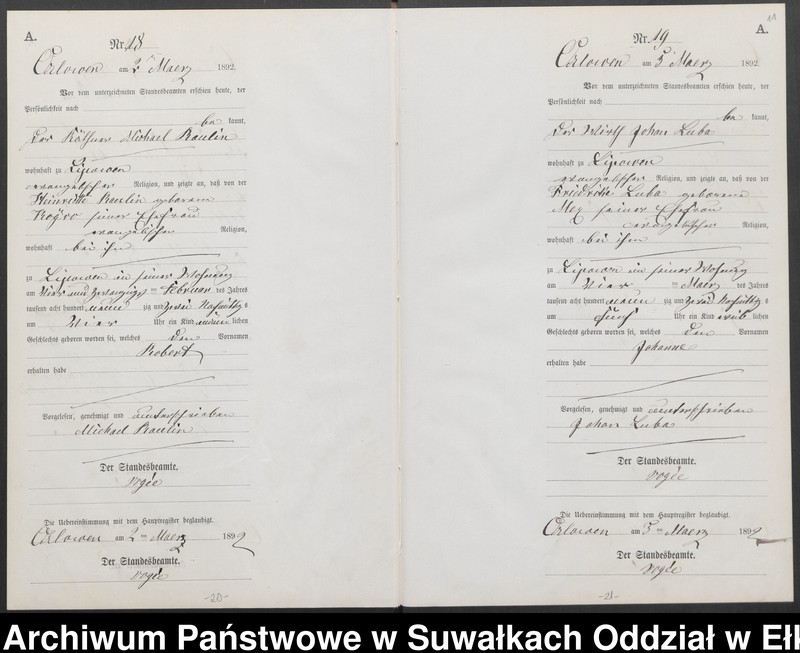 A.
Nr. 18
am 2ten Maerz 1892.
Vor dem unterzeichneten Standesbeamten erschien heute, der
Persönlichkeit nach
be kannt,
der Käthner Michael
wohnhaft zu Lipowen
evangelischer Religion, und zeigte an, daß von der
geborene
seiner Ehefrau
evangelischer Religion,
wohnhaft bei ihm
zu Lipowen in seiner Wohnung
am Vier und Zwanzigsten Februar des Jahres
tausend acht hundert neun zig und Zwei Nachmittags
um Vier Uhr ein Kind männlichen
Geschlechts geboren worden sei, welches den Vornamen
Robert
erhalten habe
Vorgelesen, genehmigt und unterschrieben
Michael
Der Standesbeamte.
Vogée
Die Uebereinstimmung mit dem Hauptregister beglaubigt.
am 2ten Maerz 1892
Der Standesbeamte.
Vogée
-20-
A.
Nr. 19
am 5ten Maerz 1892
Vor dem unterzeichneten Standesbeamten erschien heute, der
Persönlichkeit nach
be kannt,
der Wirth Johan Luba
wohnhaft zu Lipowen
evangelischer Religion, und zeigte an, daß von der
Friedrike Luba geborene
seiner Ehefrau
evangelischer Religion,
wohnhaft bei ihm
zu Lipowen in seiner Wohnung
am Vier ten Maerz des Jahres
tausend acht hundert neun zig und Zwei Nachmittags
um fünf Uhr ein Kind weib lichen
Geschlechts geboren worden sei, welches den Vornamen
Johanne
erhalten habe
Vorgelesen, genehmigt und unterschrieben
Johan Luba
Der Standesbeamte.
Vogée
Die Uebereinstimmung mit dem Hauptregister beglaubigt.
am 5ten Maerz 1892
Der Standesbeamte.
Vogée
-21-
Archiwum Państwowe w Suwałkach Oddział w Ełk